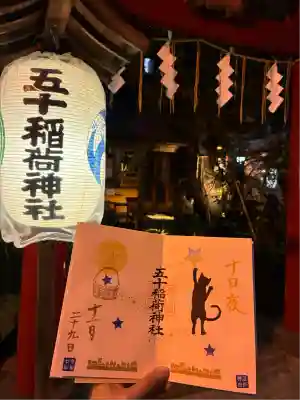 五十稲荷神社
十日夜
五十稲荷神社
十一月
二十九日